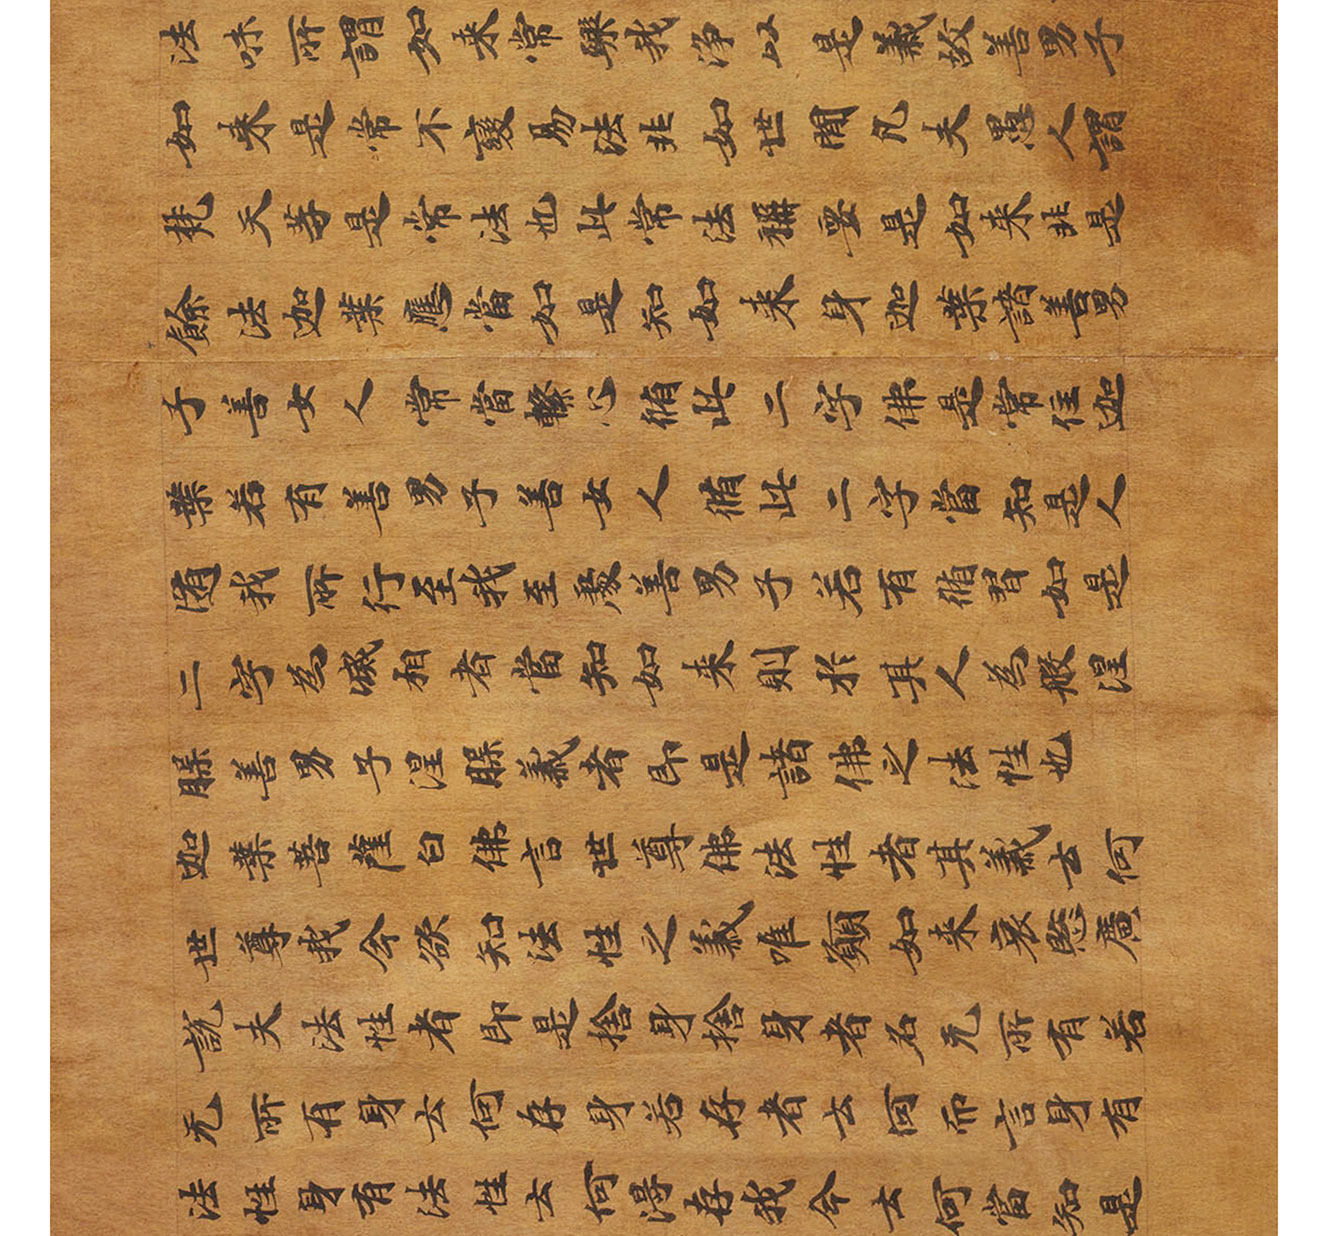 法味所謂如来常樂我淨以是義故善男子
如来是常不變易法非如世間凡夫愚人謂
梵天等是常法也此常法稱要是如来非是
餘法迦葉應當如是知如来身迦葉諸善男
子善女人常當繫心脩此二字佛是常住迦
葉若有善男子善女人脩此二字當知是人
随我所行至我至處善男子若有脩習如是
二字為滅相者當知如来則於其人為般涅
槃善男子涅槃義者即是諸佛之法性也
迦葉菩薩白佛言世尊佛法性者其義云何
世尊我今欲知法性之義唯願如来哀愍廣
說夫法性者即是捨身捨身者名无所有若
无所有身云何存身若存者云何而言身有
法性身有法性云何得存我今云何當知是